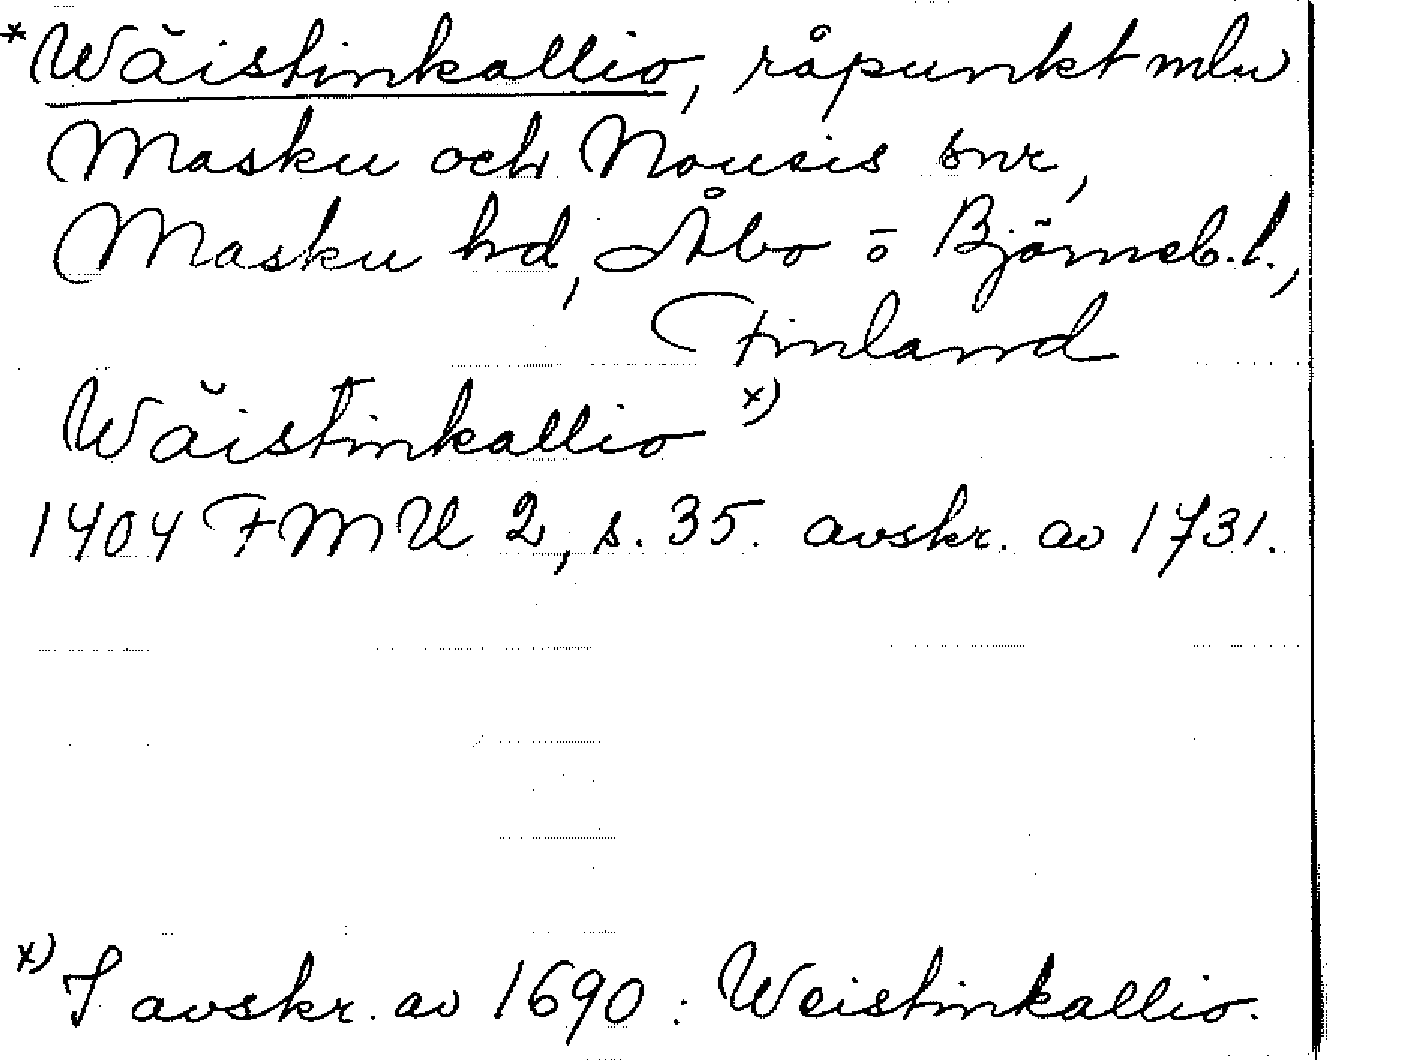 *Wäistinkallio, råpunkt mlu
Masku och Nousis snr,
Masku hd, Åbo o Björneb. l.,
Finland
Wäistinkallio x)
1404 FMU 2, s. 35. avskr. av 1731.
x) I avskr. av 1690: Weistinkallio.